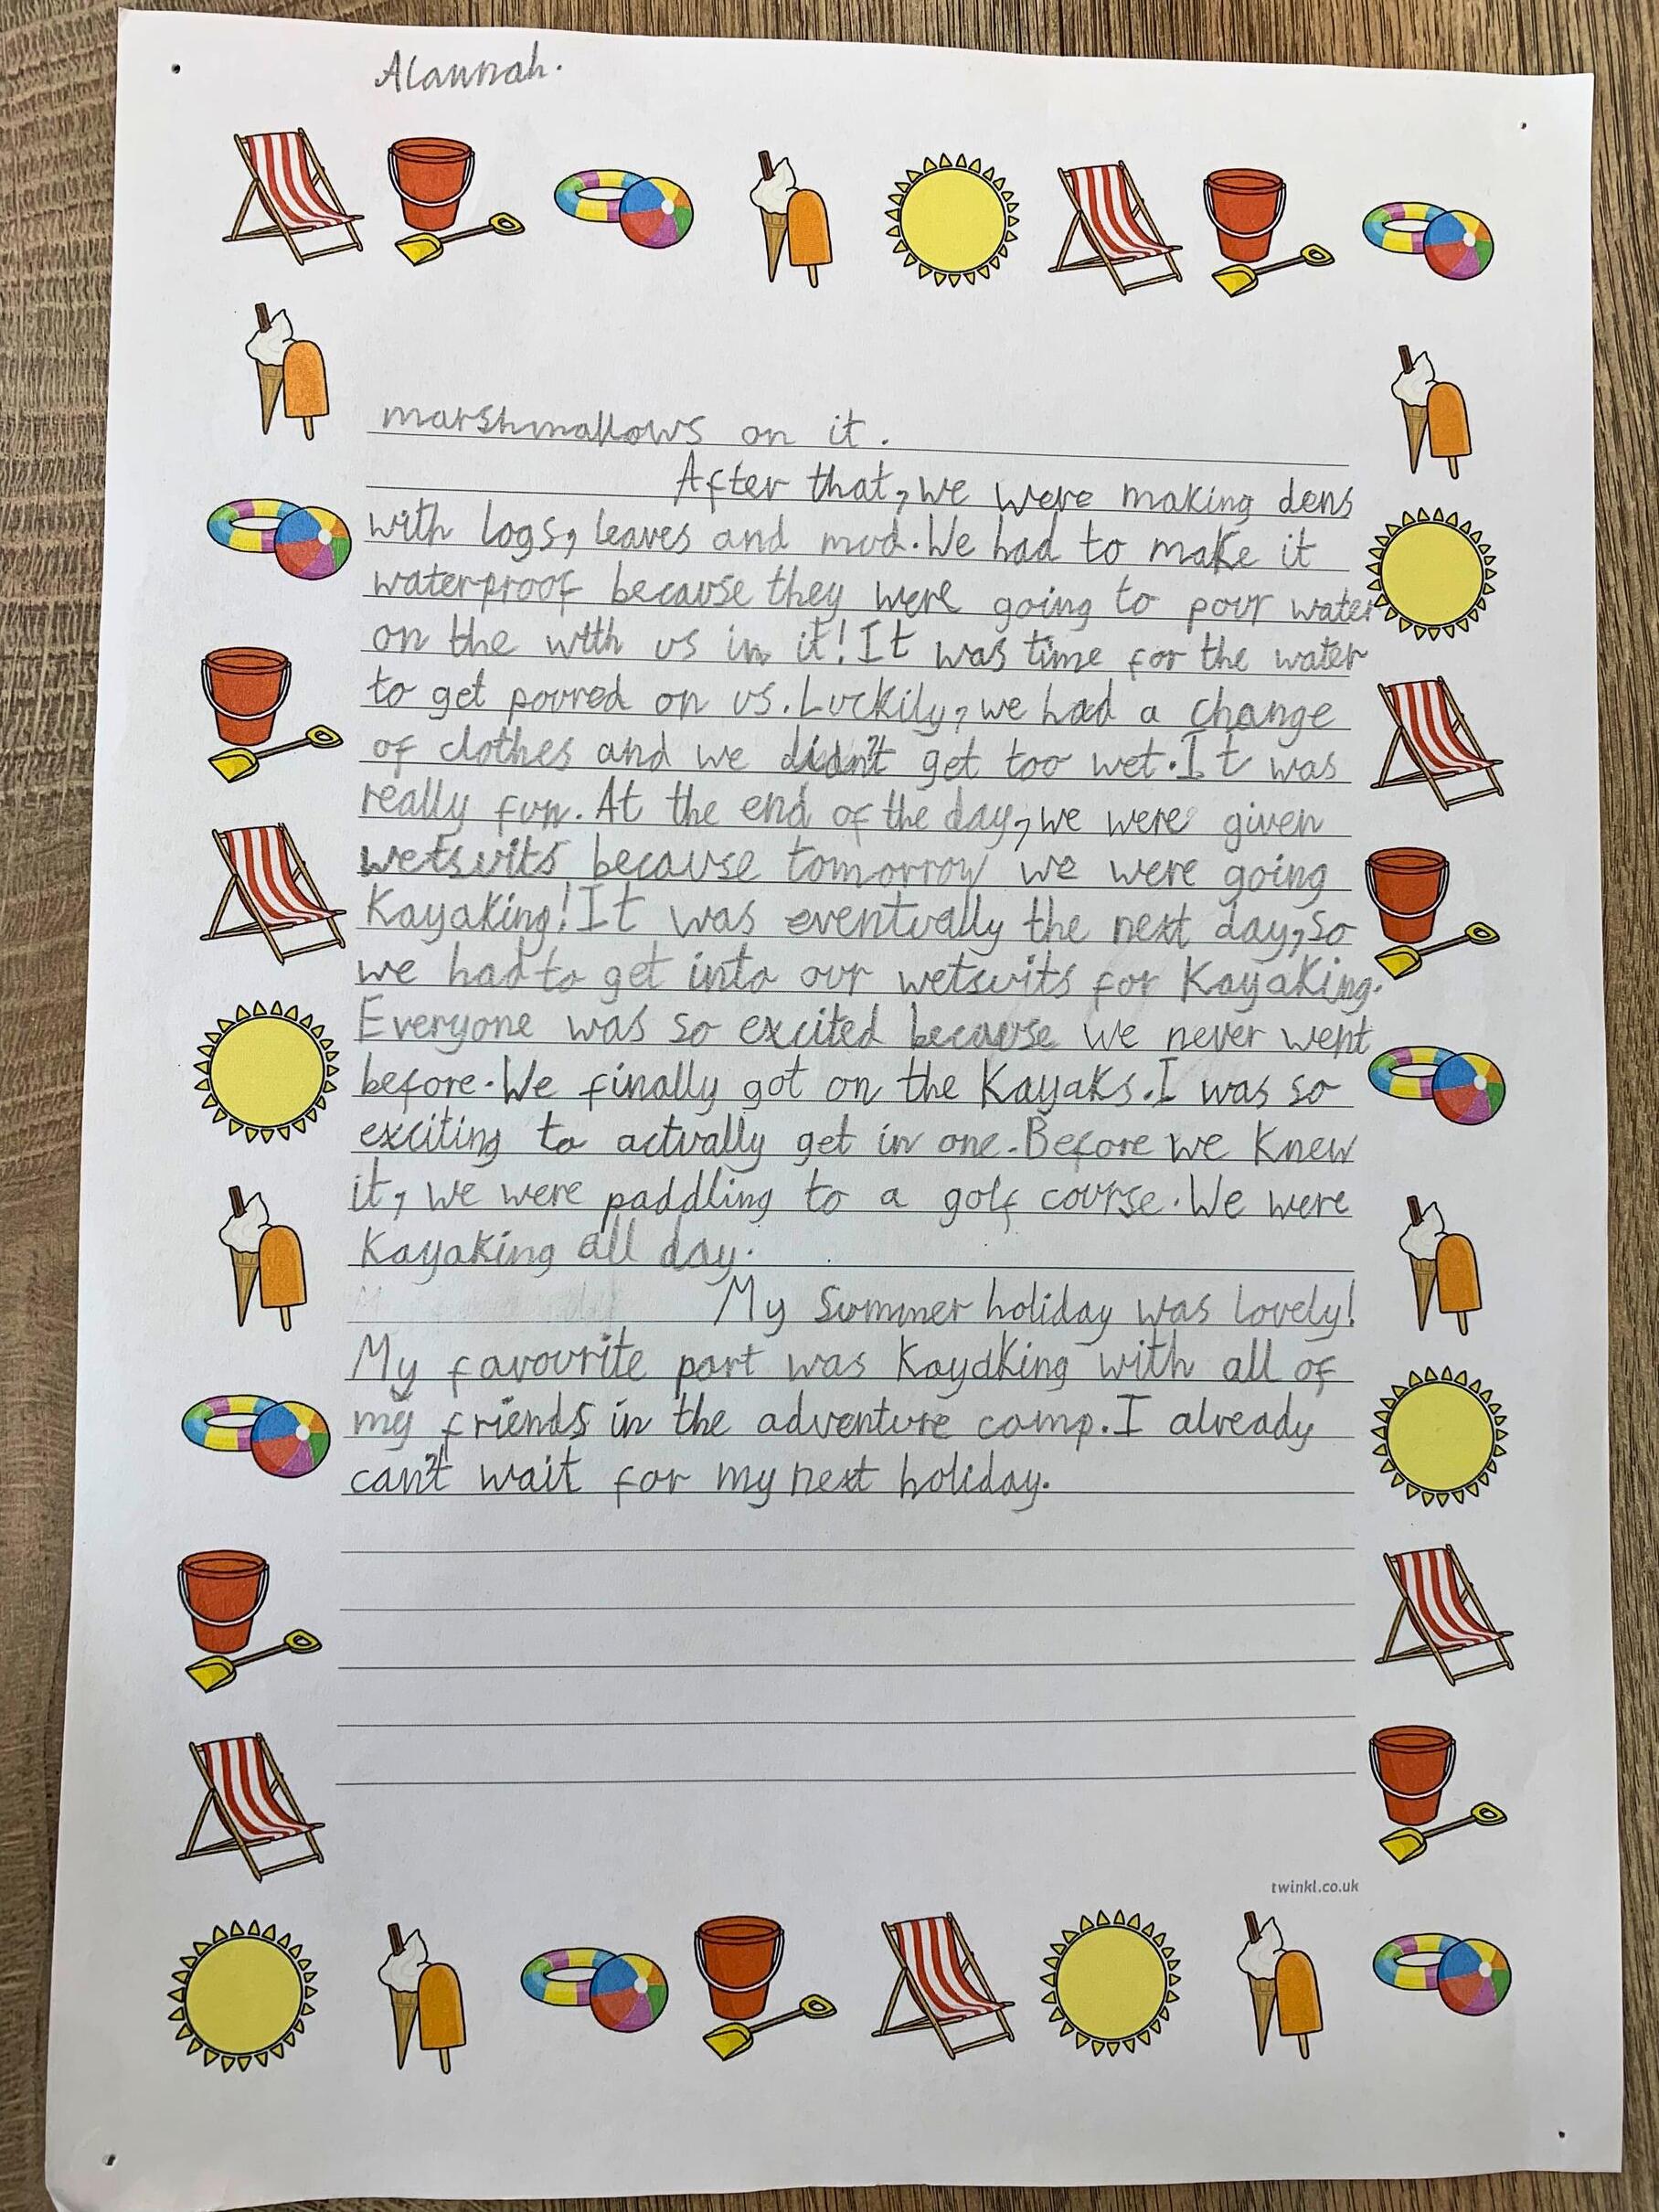 Alannah.
marshmallows on it.
After that, we were making dens
with logs, leaves and mud. We had to make it
waterproof because they were going to pour water
on the with us in it! It was time for the water
to get poured on us. Luckily, we had a change
of clothes and we didn't get too wet. It was
really fun. At the end of the day, we were given
wetsuits because tomorrow we were going
Kayaking! It was eventually the next day, so
we had to get into our wetsuits for Kayaking.
Everyone was so excited because we never went
before. We finally got on the Kayaks. I was so
exciting to actually get in one. Before we knew
it, we were paddling to a golf course. We were
Kayaking all day.
My Summer holiday was lovely!
My favourite part was Kayaking with all of
my friends in the adventure camp. I already
can't wait for my next holiday.
twinkl.co.uk